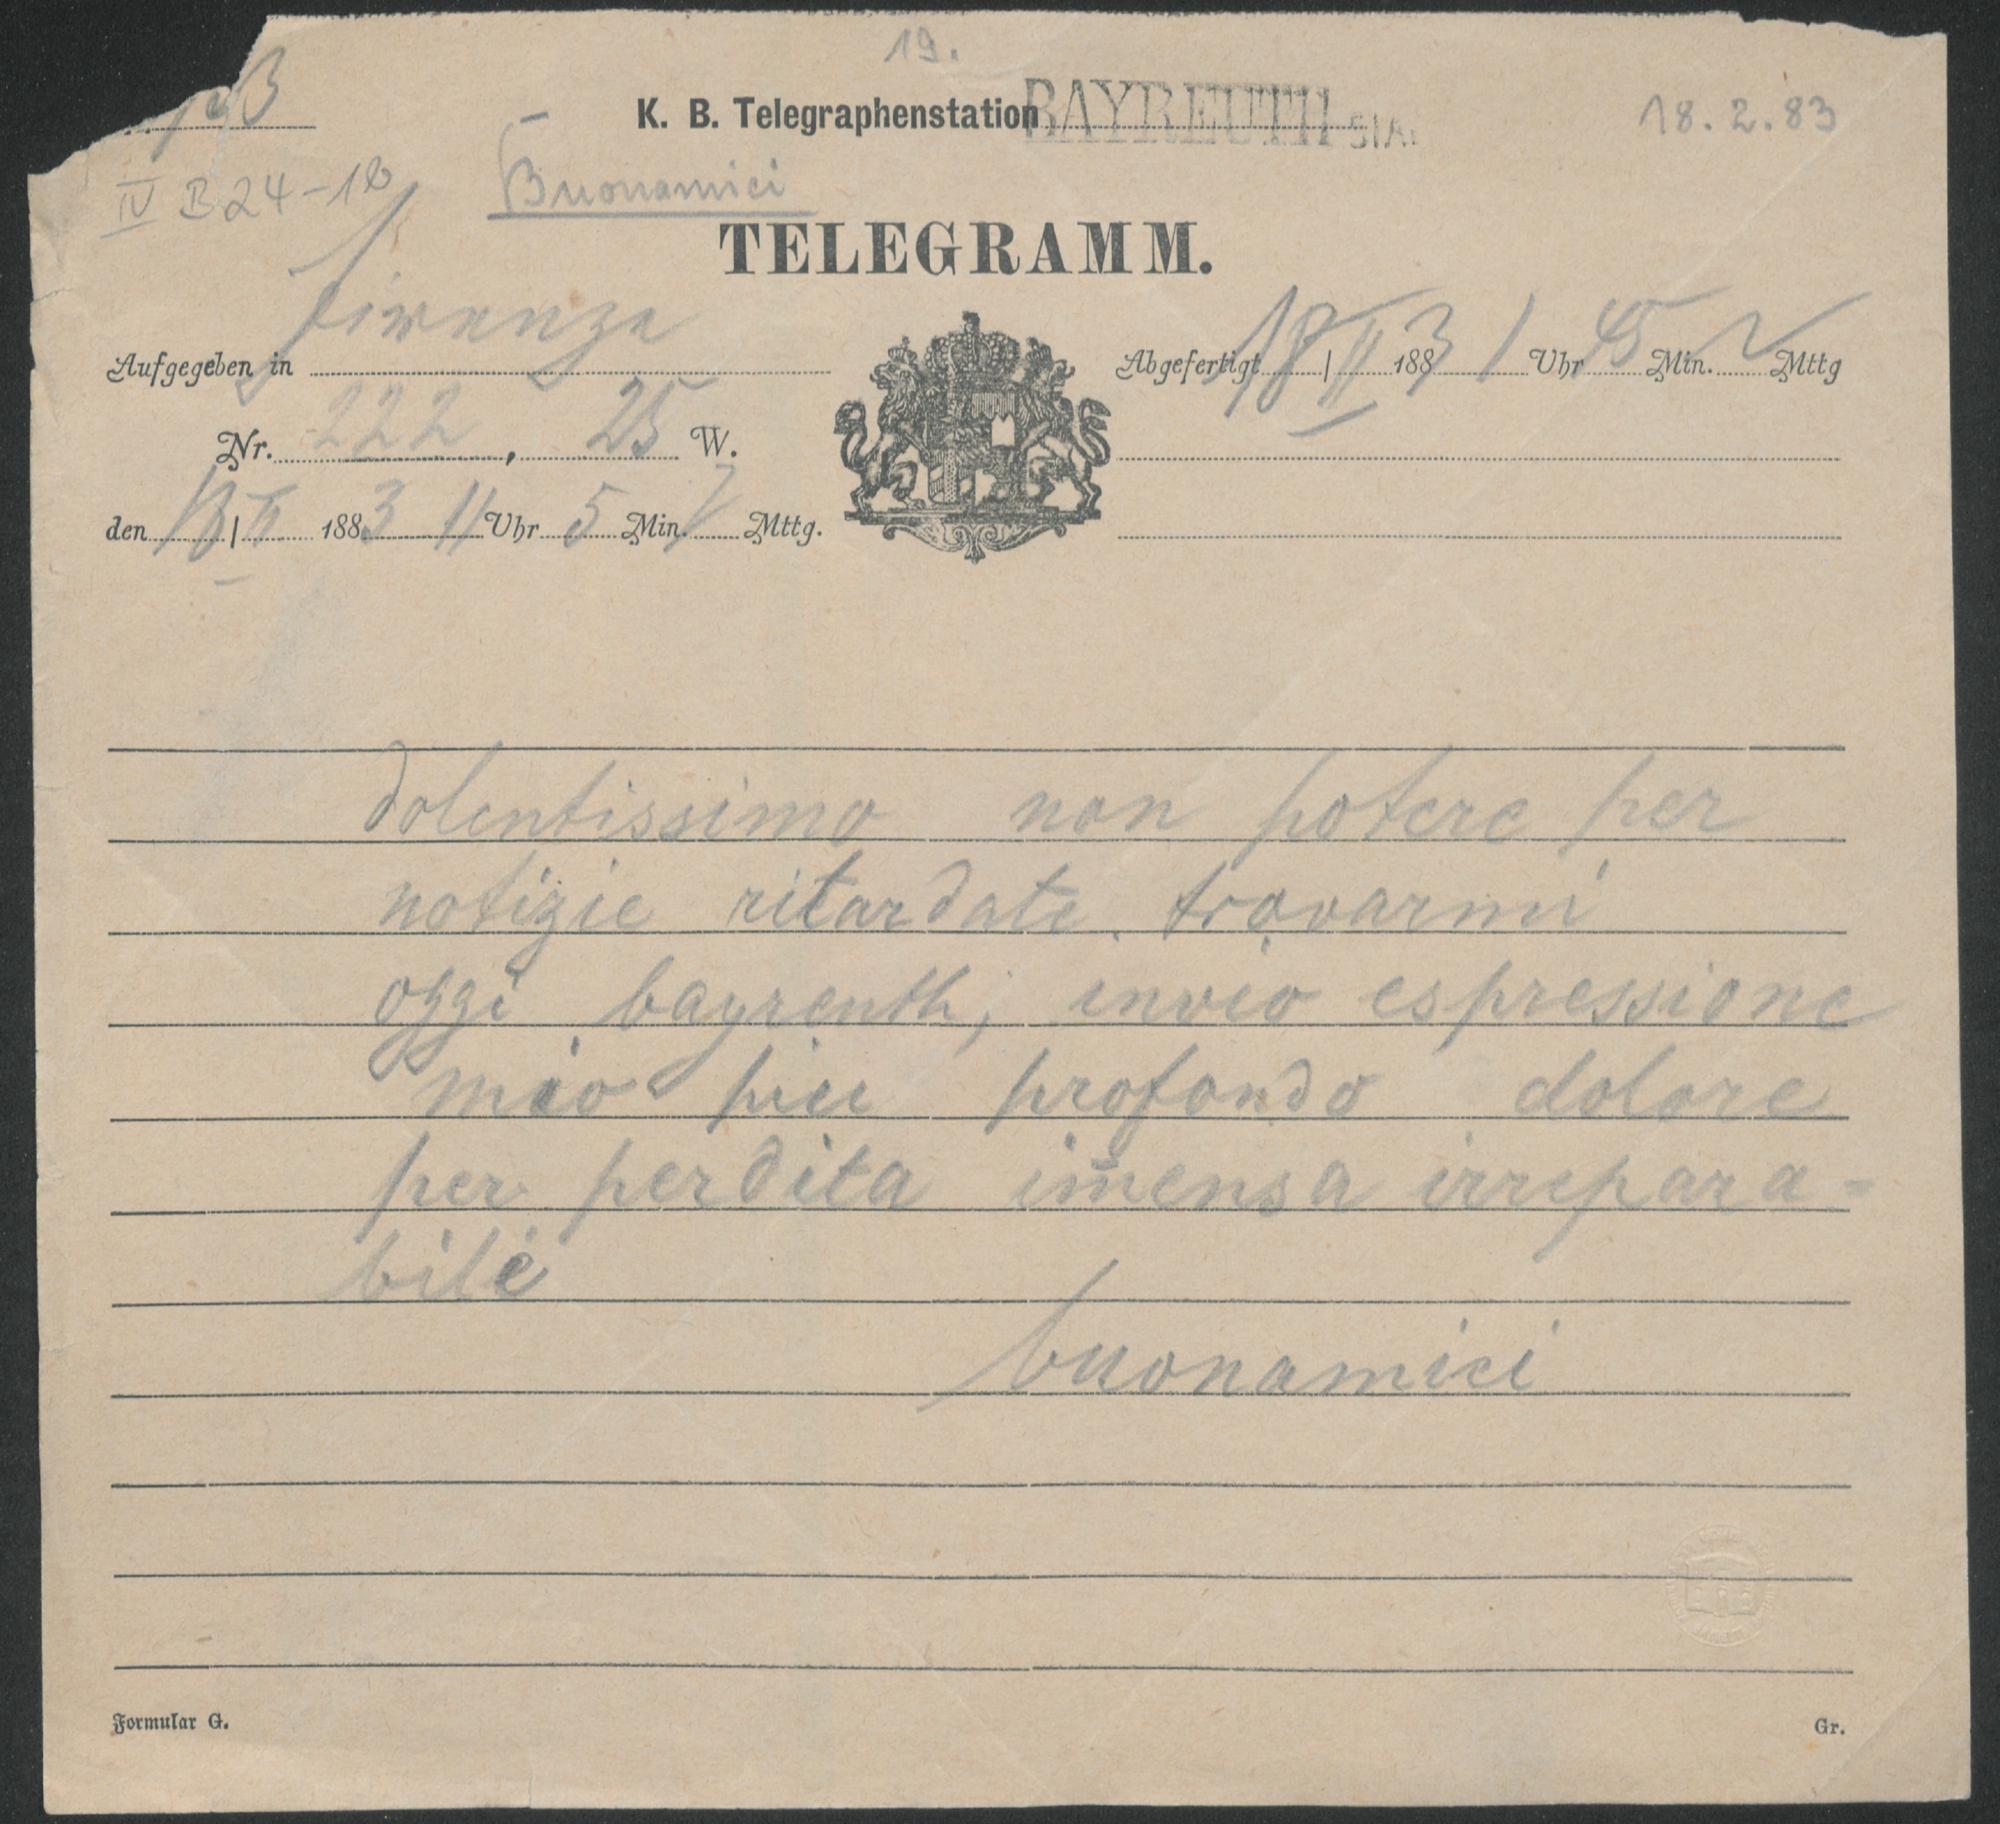 19.
K. B. Telegraphenstation BAYREUTH STA.
18.2.83
IV B 24-12
Buonamici
TELEGRAMM.
Aufgegeben in Firenze
Abgefertigt 18 / II 1883 1 Uhr 45 Min. Mttg
Nr. 222, 25 W.
den 18 / II 1883 11 Uhr 5 Min. V Mttg.
dolentissimo non potere per
notizie ritardate. trovarmi
oggi bayreuth, invio espressione
mio piu profondo dolore
per perdita im̄ensa irrepara-
bile
buonamici
Formular G.
Gr.